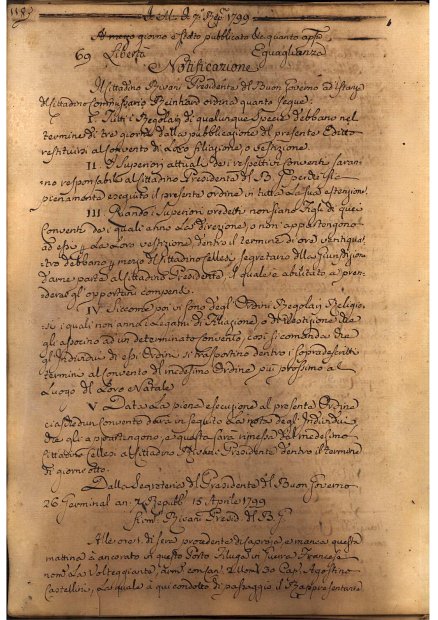 A M. d. 7. Rep. 1799
Al mezzo giorno è stato pubblicato quanto app.
69 Libertà Eguaglianza
Notificazione
Il Cittadino Rivani Presidente del Buon Governo ad istanza
del Cittadino Commissario Reinhard ordina quanto segue
I. Tutti i Regolari di qualunque specie debbano nel
termine di tre giorni dalla pubblicazione del presente Editto
restituirsi al Convento di Loro filiazione, o vestizione
II. I Superiori attuali dei rispettivi conventi saran-
no responsabili al Cittadino Presidente del B. G. perchè sia
pienamente eseguito il presente ordine in tutta la sua estensione
III Quando i Superiori predetti non siano figli di quei
Conventi dei quali anno la direzione, o non appartengono
ad essi p. la Loro vestizione, dentro il termine di ore ventiquat-
tro debbano p. mezzo del Cittadino Celles segretario della Giurisdizione
darne parte al Cittadino Presidente, il quale è abilitato a pren-
dere gl'opportuni compensi.
IV. Siccome poi vi sono degl'Ordini Regolari Religio-
si i quali non anno Legami di filiazione, o di vestizione che
gli ascrino ad un determinato convento, così si comanda che
gl'Individui di essi Ordini si trasportino dentro i sopradescritti
termini al convento del medesimo Ordine più prossimo al
Luogo del Loro Natale
V. Data la piena esecuzione al presente Ordine
ciaschedun convento darà in seguito la nota degl'Individui
che gli appartengono, e questa sarà rimessa dal medesimo
Cittadino Celles al Cittadino Rivani Presidente dentro il termine
di giorni otto.
Dalla Segreteria del Presidente del Buon Governo
26 Germinal an: 7. Repub. 15 Aprile 1799
Rivani Presid. del B. G.
Alle ore di sera procedente
mattina à ancorato in questo Porto Filuga in Guerra Francese
nom. La Volteggiante, arm. con 30 Cap. Agostino
Castellini, La quale à qui condotto di passaggio il Rappresentante